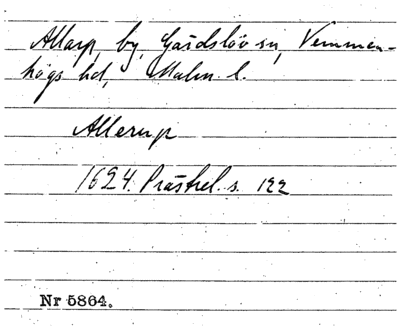 Allarp, by, Gärdslöv sn, Vemmen-
högs hd, Malm. l.
Allerup
1624. Prästrel. s. 122
Nr 5864.